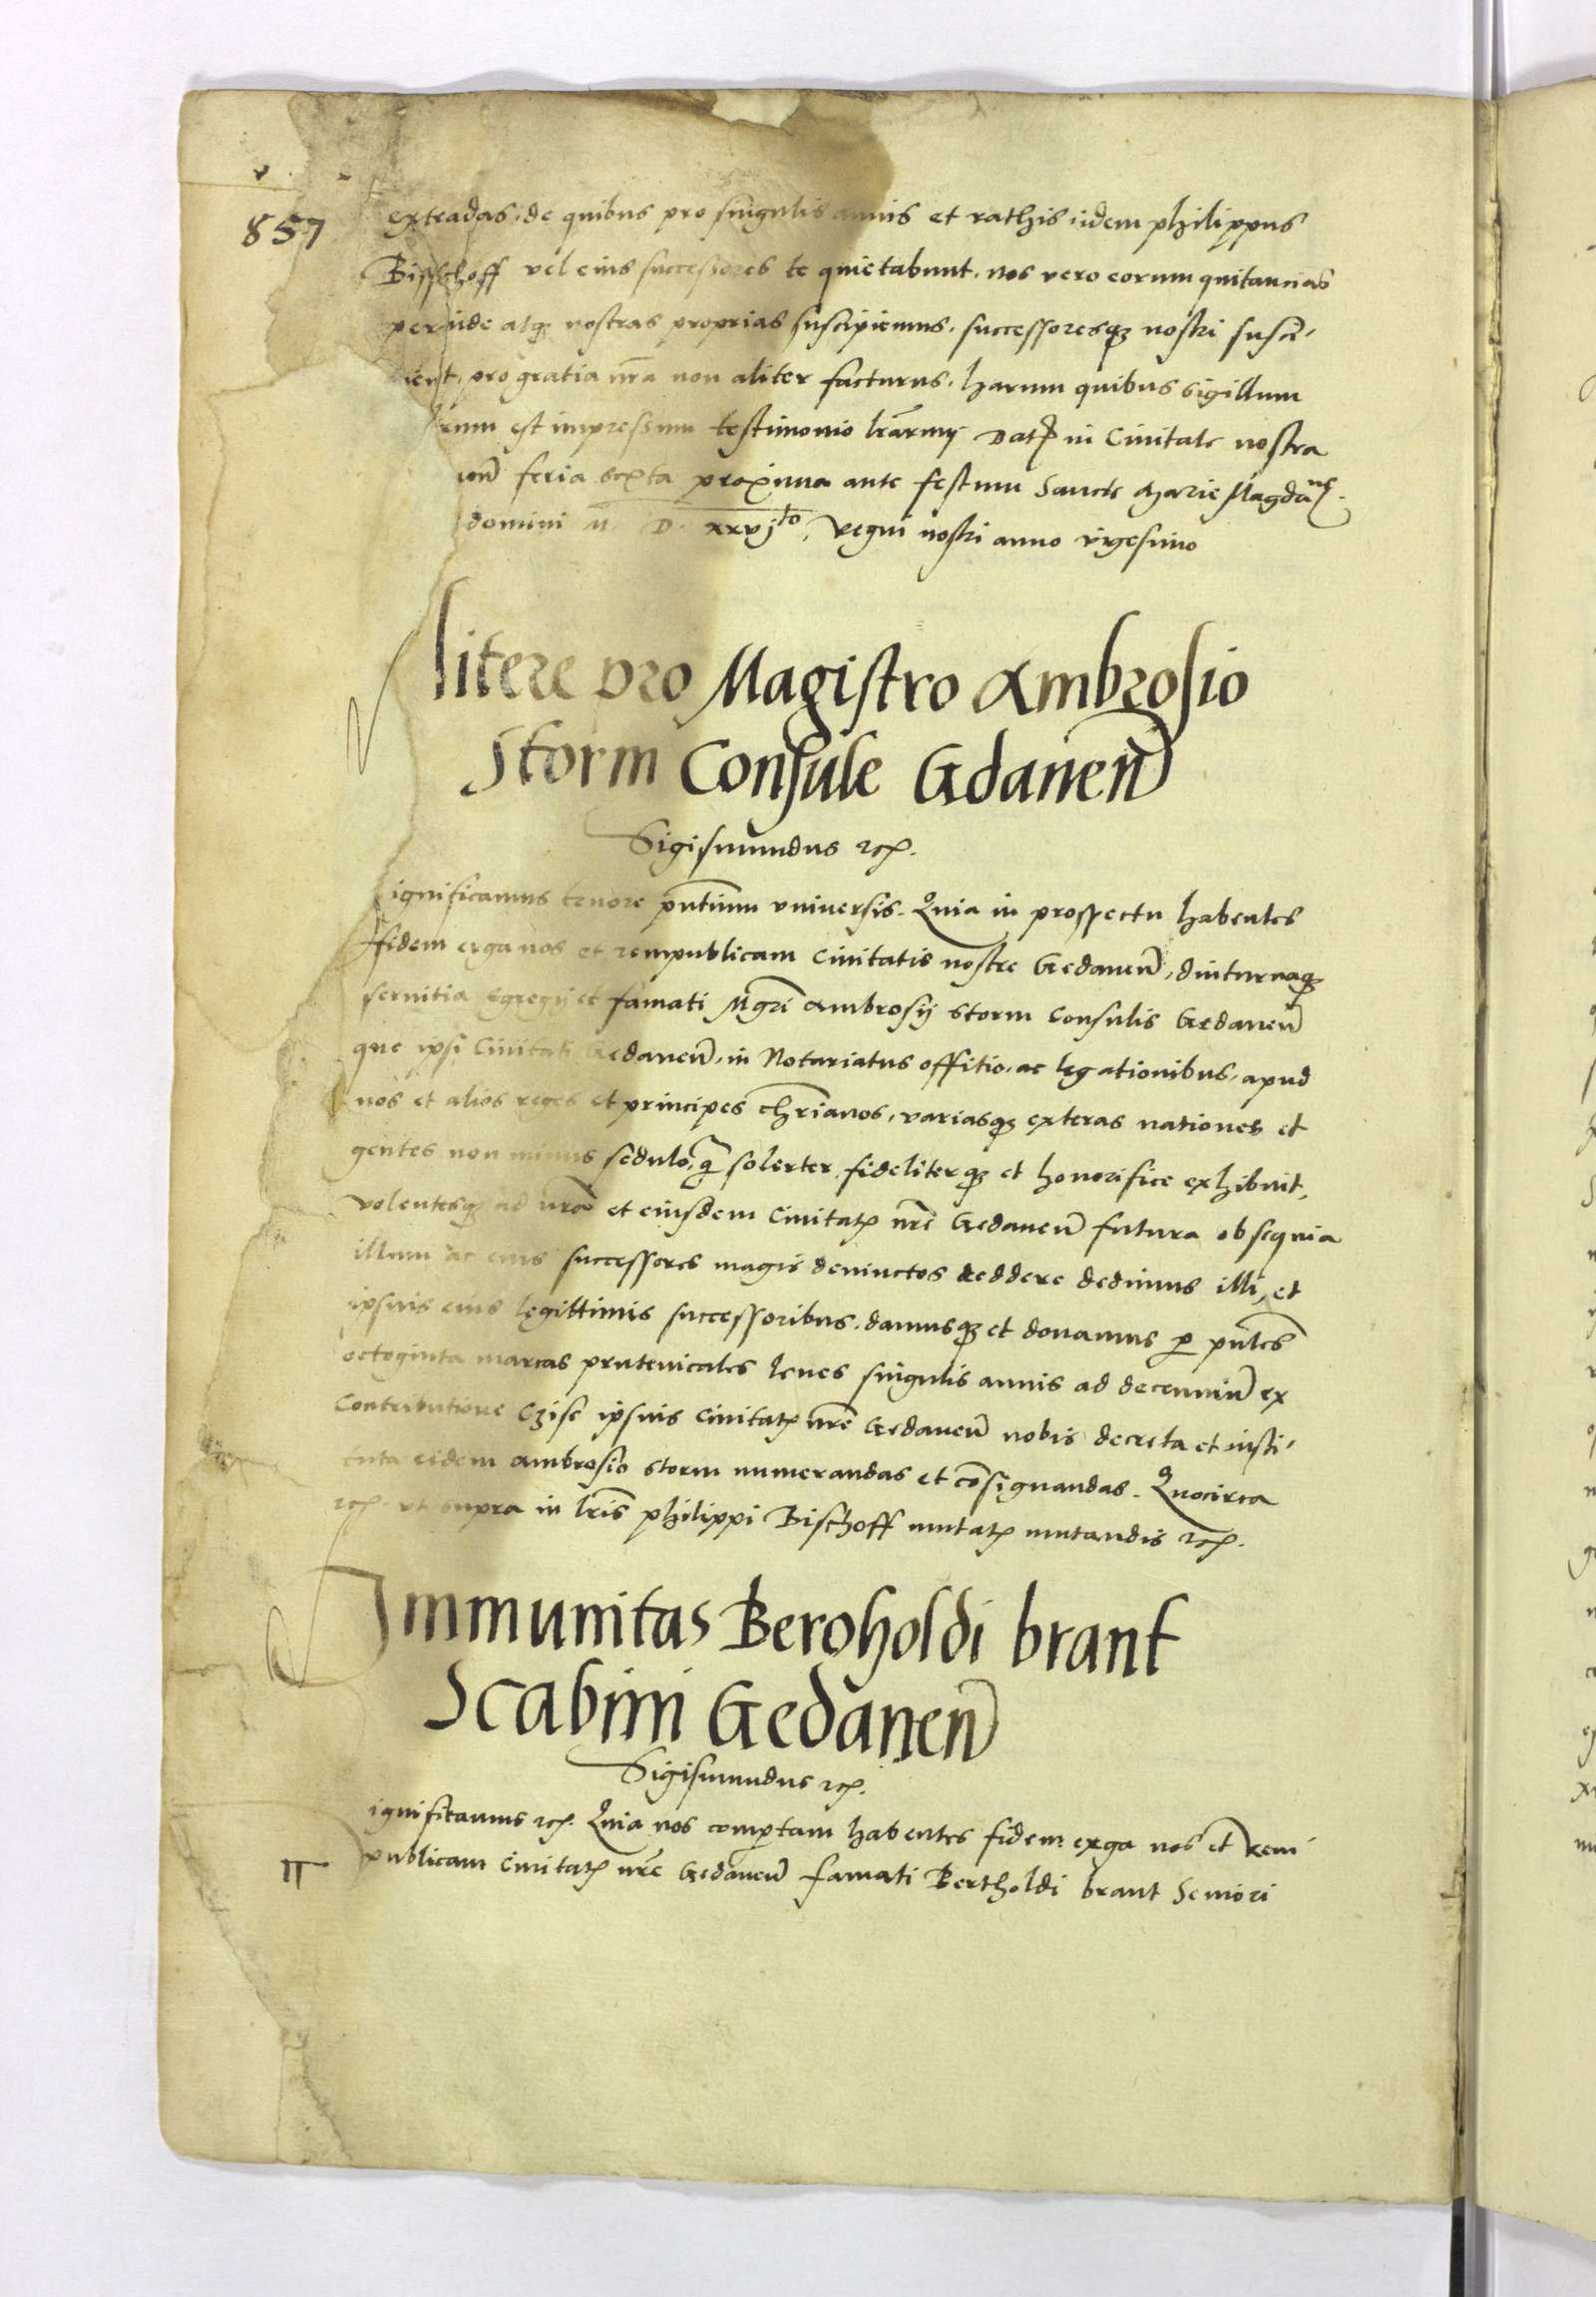 857
extradas, de quibus pro singulis annis et rathis iidem philippus
Bisschoff vel eius successores te quietabunt. nos vero eorum quitancias
perinde atq nostras proprias suscipiemus. successoresq nostri susci-
pient, pro gratia nra non aliter facturus. harum quibus sigillum
est impressum testimonio lrarum Dat in Civitate nostra
feria sexta proxima ante festum Sancte Marie Magdane.
domini M. D. xxvjto. Regni nostri anno vigesimo
litere pro Magistro Ambrosio
Storm Consule Gdanen
Sigismundus etc.
ignificamus tenore pntium vniversis. Quia in prospectu habentes
fidem erga nos et rempublicam Civitatis nostre Gedanen, diuturnaq
servitia Egregij et famati Mgri Ambrosij Storm Consulis Gedanen
que ipsi Civitati Gedanen, in Notariatus offitio, ac legationibus, apud
nos et alios reges et principes chrianos, variasq exteras nationes et
gentes non minus sedulo, q solerter fideliterq et honorifice exhibuit,
volentesq ad nra et eiusdem Civitat nre Gedanen futura obsequia
illum ac eius successores magis devinctos reddere dedimus illi, et
ipsius eius legittimis successoribus. damusq et donamus p pntes
octoginta marcas prutenicales leves singulis annis ad decenniu ex
Contributione Czise ipsius Civitat nre Gedanen nobis decreta et insti-
tuta eidem Ambrosio Storm numerandas et cosignandas. Quocirca
etc. vt supra in lris philippi Bischoff mutat mutandis etc.
Immunitas Beroholdi brant
Scabini Gedanen
Sigismundus etc.
ignificamus etc. Quia nos compertam habentes fidem erga nos et rem
publicam Civitat nre Gedanen famati Bertholdi brant Seniori
II